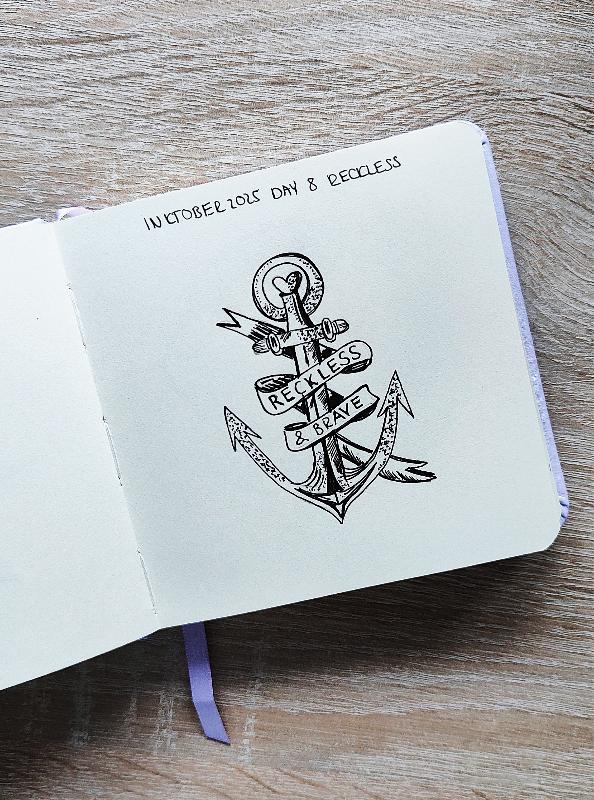 INKTOBER 2025 DAY 8 RECKLESS
RECKLESS
& BRAVE